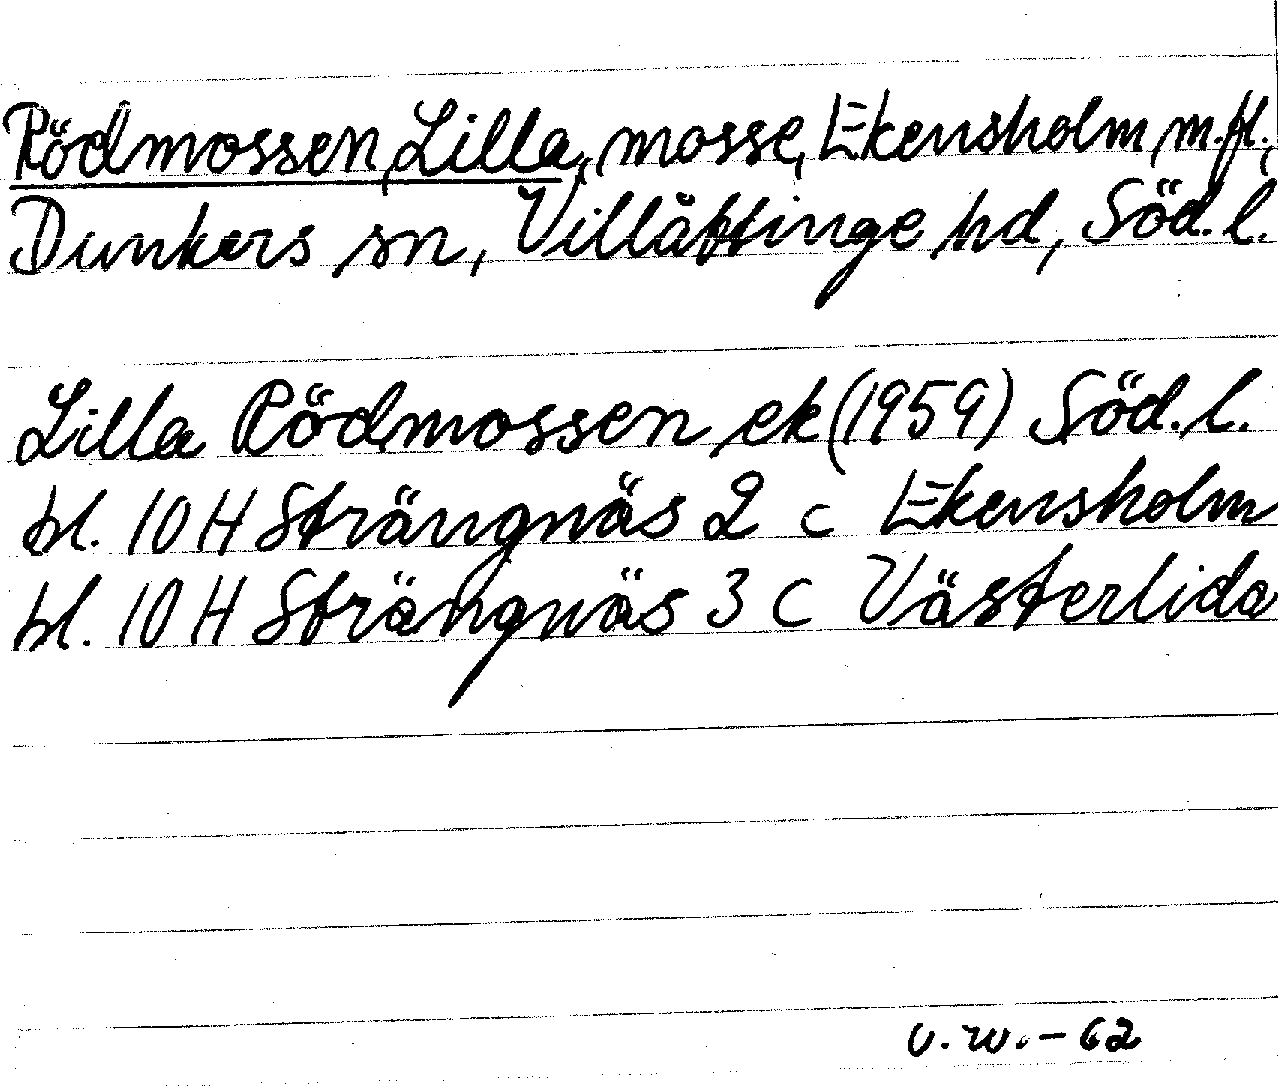 Rödmossen, Lilla, mosse, Ekensholm m.fl.,
Dunkers sn, Villåttinge hd, Söd.l.
Lilla Rödmossen ek (1959) Söd.l.
bl. 10 H Strängnäs 2 c Ekensholm
bl. 10 H Strängnäs 3 c Västerlida
v.w. - 62